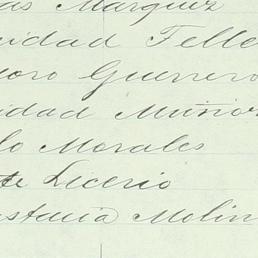 as Marquez
idad Telle
oro Guerrero
idad Muñoz
lo Morales
te Licerio
stacia Molin